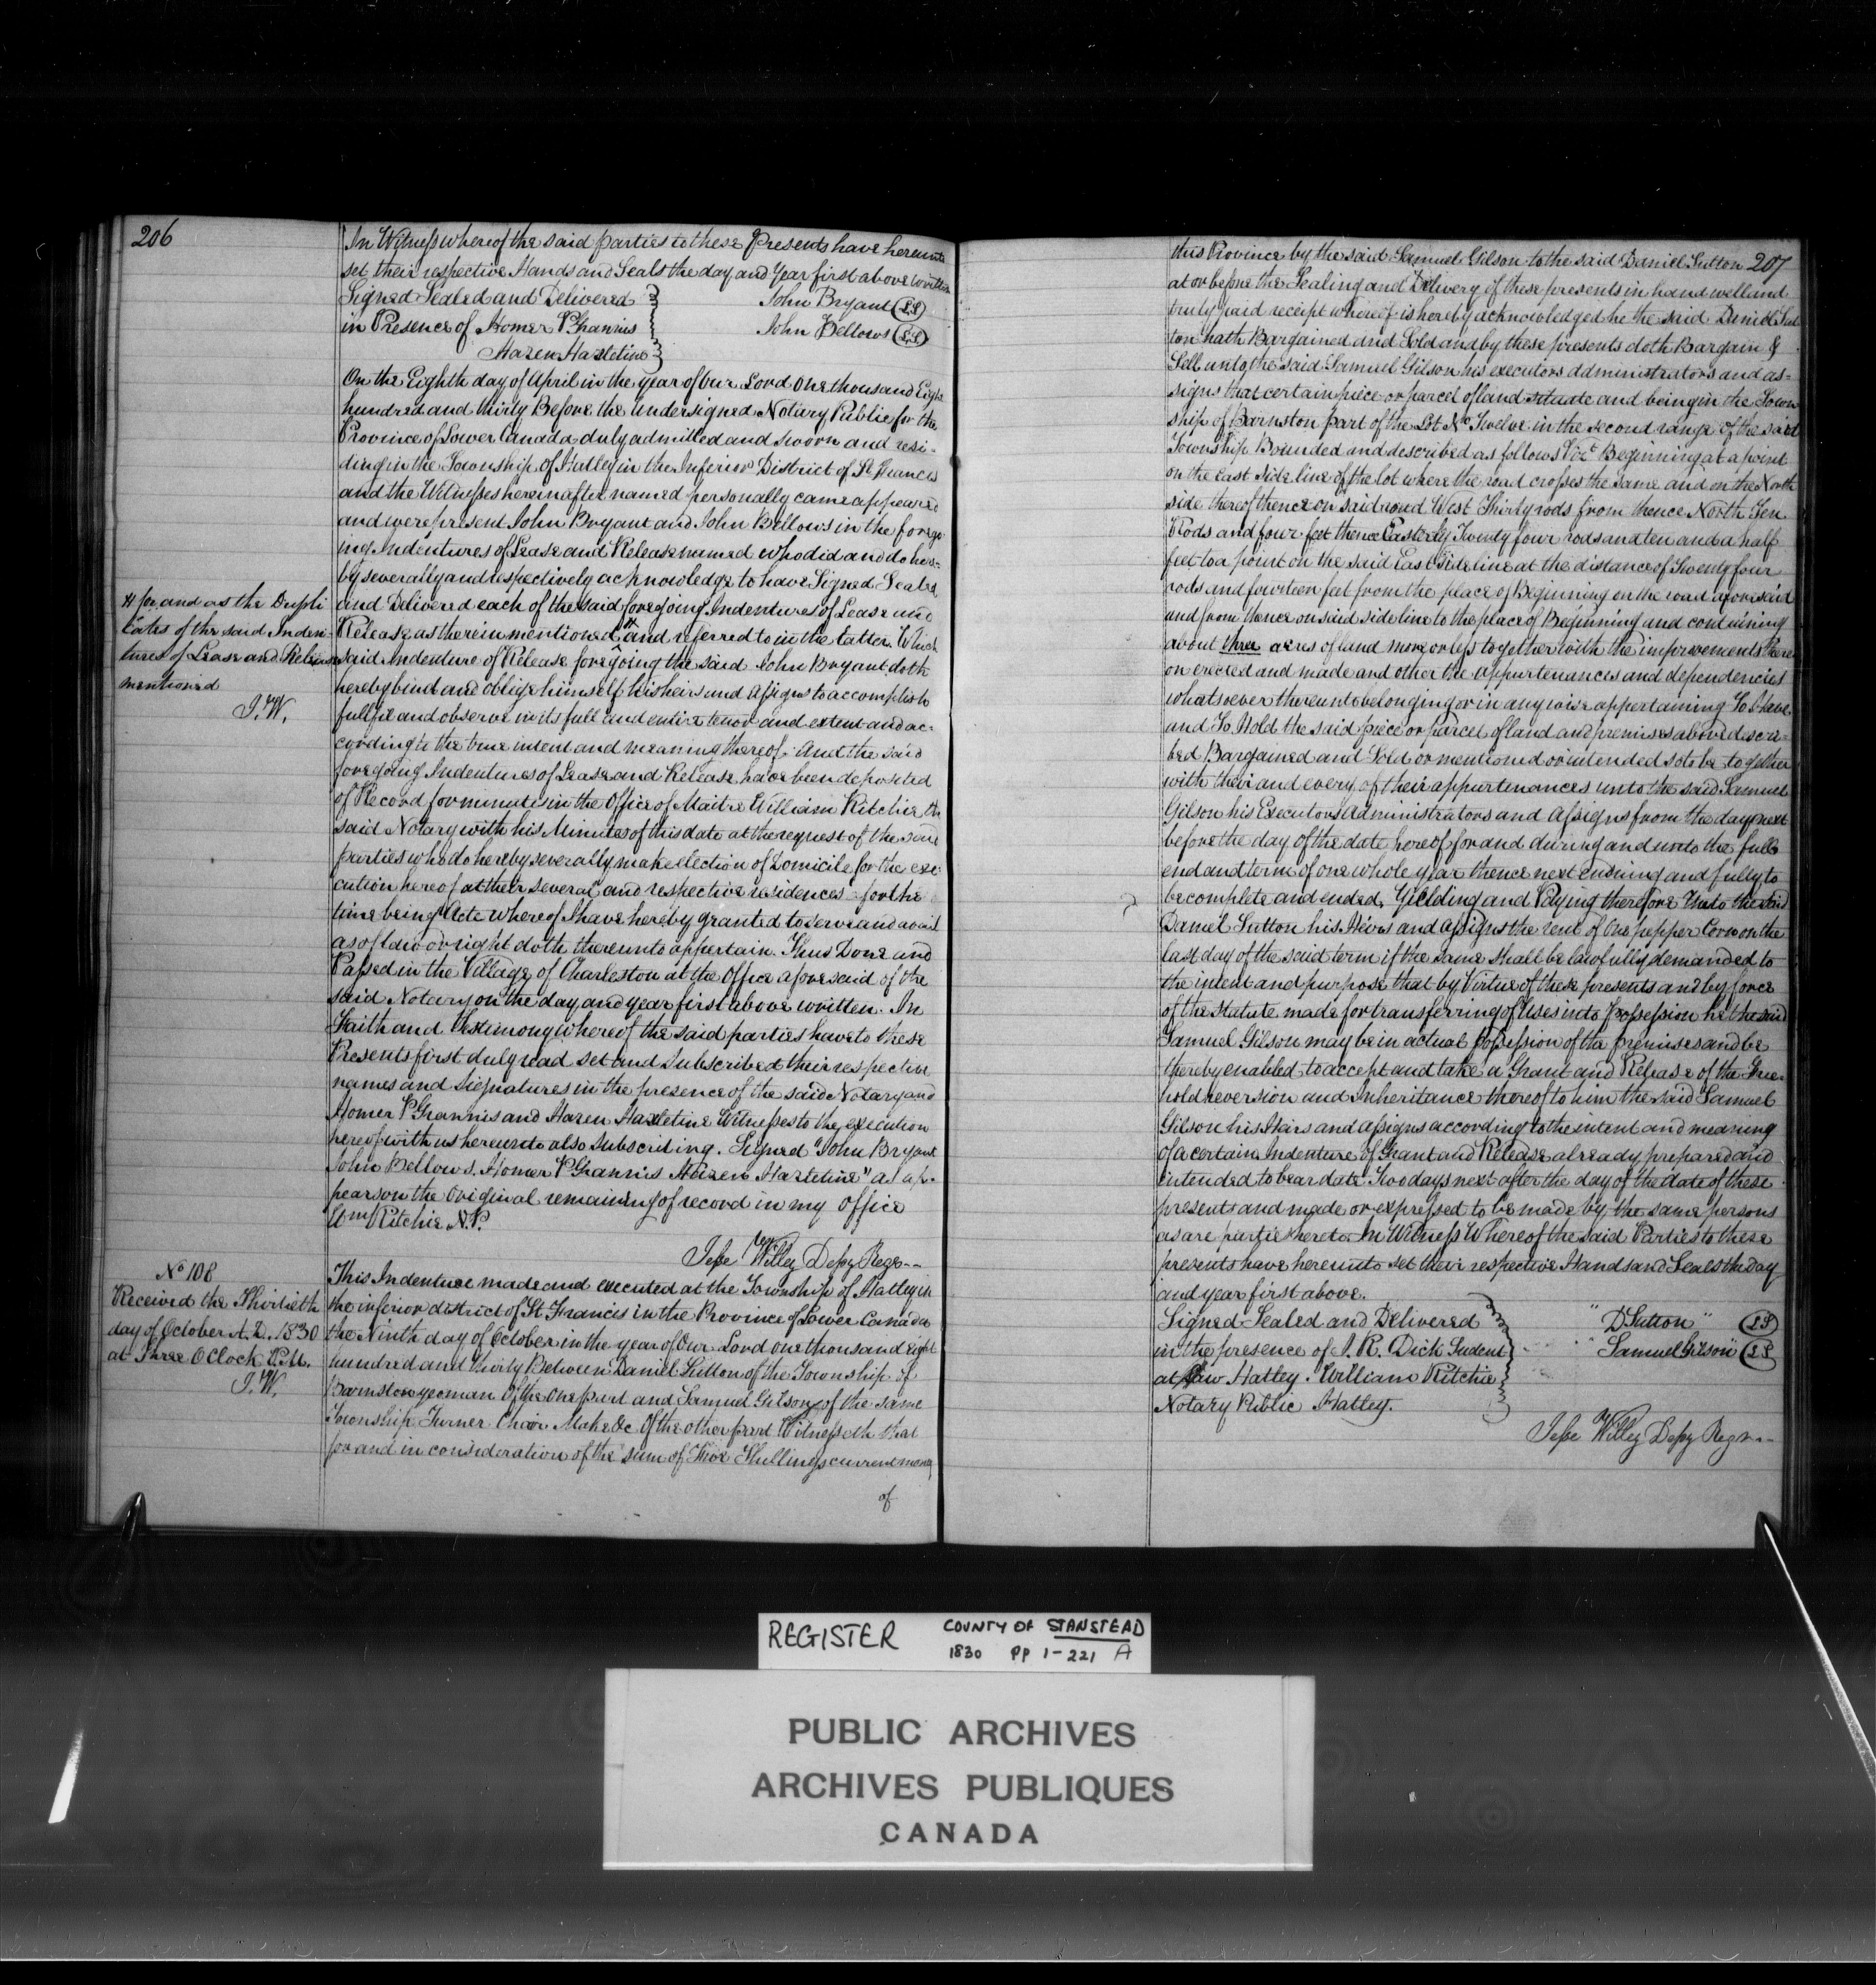 206
In Witness whereof the said parties to these Presents have hereunto
set their respective Hands and Seals the day and Year first above written
Signed Sealed and Delivered John Bryant LS
in Presence of Homer P Grannis John Bellows LS
Hazen Hazletine
On the Eighth day of April in the year of Our Lord One thousand Eight
hundred and thirty Before the Undersigned Notary Public for the
Province of Lower Canada duly admitted and sworn and resi-
ding in the Township of Hatley in the Inferior District of St Francis
and the Witnesses hereinafter named personally came appeared
and were present John Bryant and John Bellows in the forego
ing Indentures of Lease and Release named who did and do here-
by severally and respectively acknowledge to have Signed Sealed
and Delivered each of the said foregoing Indentures of Lease and
Release as therein mentioned # and referred to in the latter. Which
said Indenture of Release foregoing the said John Bryant doth
hereby bind and oblige himself his heirs and Assigns to accomplish
fullfil and observe in its full and entire tenor and extent and ac-
cording to the true intent and meaning thereof. And the said
foregoing Indentures of Lease and Release have been deposited
of Record for minutes in the Office of Maitre William Ritchie the
said Notary with his Minutes of this date at the request of the said
parties who do hereby severally make election of Domicile for the exe
cution hereof at their several and respective residences for the
time being Acte whereof I have hereby granted to serve and avail
as of law or right doth thereunto appertain. Thus Done and
Passed in the Village of Charleston at the Office aforesaid of the
said Notary on the day and year first above written. In
Faith and Testimony whereof the said parties have to these
Presents first duly read set and Subscribed their respective
names and Signatures in the presence of the said Notary and
Homer P Grannis and Hazen Hazletine Witnesses to the execution
hereof with us hereunto also Subscribing. Signed "John Bryant
John Bellows. Homer P Grannis Hazen Hazletine" as ap-
pears on the Original remaining of record in my Office
Wm Ritchie N.P.
Jesse Willey Depy Regr
# for and as the Dupli
cates of the said Inden-
tures of Lease and Release
mentioned
J.W.
No 108
Received the Thirtieth
day of October A.D. 1830
at Three OClock P.M.
J.W.
This Indenture made and executed at the Township of Hatley in
the inferior district of St Francis in the Province of Lower Canada
the Ninth day of October in the year of Our Lord one thousand eight
hundred and thirty Between Daniel Sutton of the Township of
Barnston yeoman Of the One part and Samuel Gilson of the same
Township Turner Chair Maker &c Of the other part Witnesseth that
for and in consideration of the sum of Five Shillings current money
of
207
this Province by the said Samuel Gilson to the said Daniel Sutton
at or before the Sealing and Delivery of these presents in hand well and
truly paid receipt whereof is hereby acknowledged he the said Daniel Sut
ton hath Bargained and Sold and by these presents doth Bargain &
Sell unto the said Samuel Gilson his executors administrators and as-
signs that certain piece or parcel of land situate and being in the Town
ship of Barnston part of the Lot No Twelve in the second range of the said
Township Bounded and described as follows Vizt Beginning at a point
on the East Side line of the lot where the road crosses the same and on the North
side thereof thence on said road West Thirty rods from thence North Ten
Rods and four feet thence Easterly Twenty four rods and ten and a half
feet to a point on the said East Side line at the distance of Twenty four
rods and fourteen feet from the place of Beginning on the road aforesaid
and from thence on said side line to the place of Beginning and containing
about three acres of land more or less together with the improvements there
on erected and made and other the appurtenances and dependencies
whatsoever thereunto belonging or in any wise appertaining To Have
and To Hold the said piece or parcel of land and premises above descri-
bed Bargained and Sold or mentioned or intended so to be together
with their and every of their appurtenances unto the said Samuel
Gilson his Executors Administrators and Assigns from the day next
before the day of the date hereof for and during and unto the full
end and term of one whole year thence next ensuing and fully to
be complete and ended, Yielding and Paying therefore Unto the said
Daniel Sutton his Heirs and Assigns the rent of One pepper Corn on the
last day of the said term if the same shall be lawfully demanded to
the intent and purpose that by Virtue of these presents and by force
of the Statute made for transferring of Uses into Possession he the said
Samuel Gilson may be in actual possession of the premises and be
thereby enabled to accept and take a Grant and Release of the Free-
hold reversion and Inheritance thereof to him the said Samuel
Gilson his Heirs and Assigns according to the intent and meaning
of a certain Indenture of Grant and Release already prepared and
intended to bear date Two days next after the day of the date of these
presents and made or expressed to be made by the same persons
as are parties hereto. In Witness Whereof the said Parties to these
presents have hereunto set their respective Hands and Seals the day
and year first above.
Signed Sealed and Delivered "DSutton" LS
in the presence of A. R. Dick Student "Samuel Gilson" LS
at Law Hatley. William Ritchie
Notary Public Hatley.
Jesse Willey Depy Regr
REGISTER COUNTY OF STANSTEAD
1830 PP 1-221 A
PUBLIC ARCHIVES
ARCHIVES PUBLIQUES
CANADA